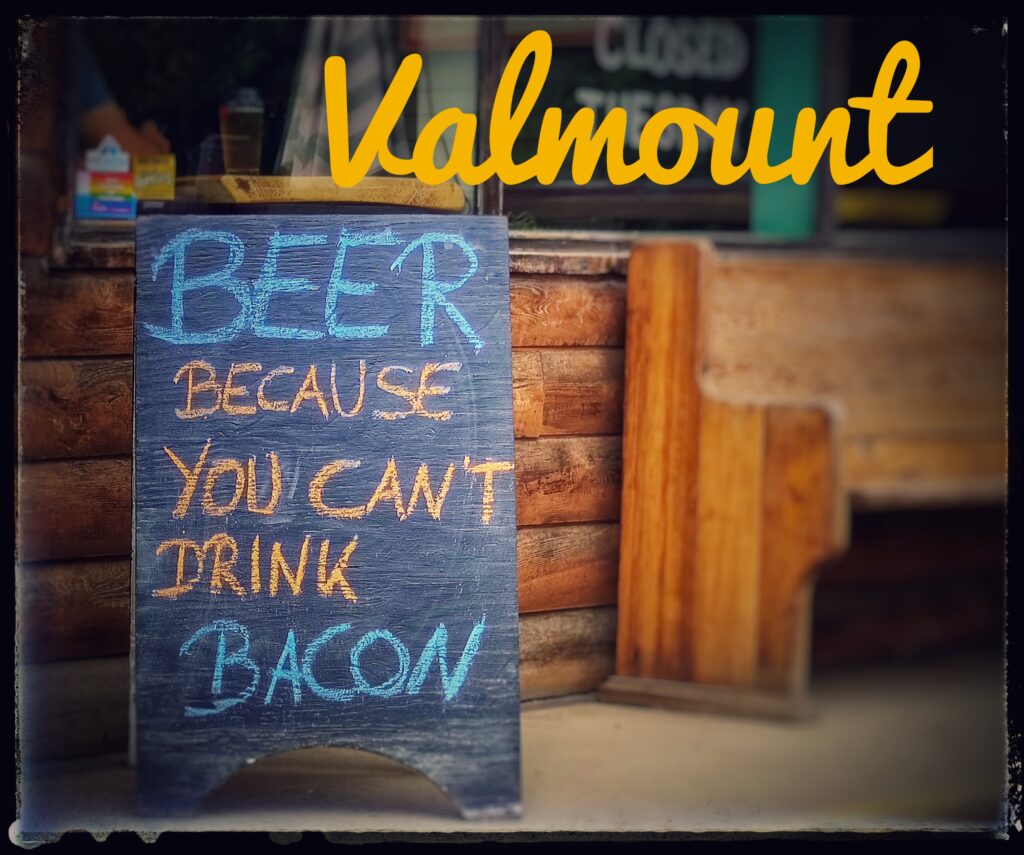 Valmount
CLOSED
TUESDAY
BEER
BECAUSE
YOU CAN'T
DRINK
BACON